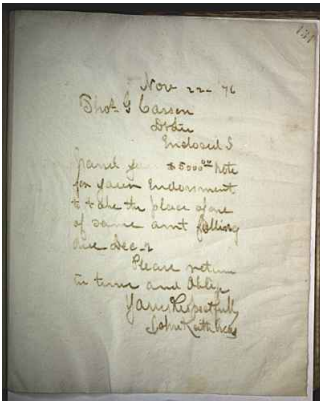 131
Nov 22 - 76
Thos G Carson
Enclosed I
hand you $5000 00 note
for your Endorsment
to take the place of one
of same amt falling
due Dec 2
Please return
in term and Oblige
Yours Respectfully
John